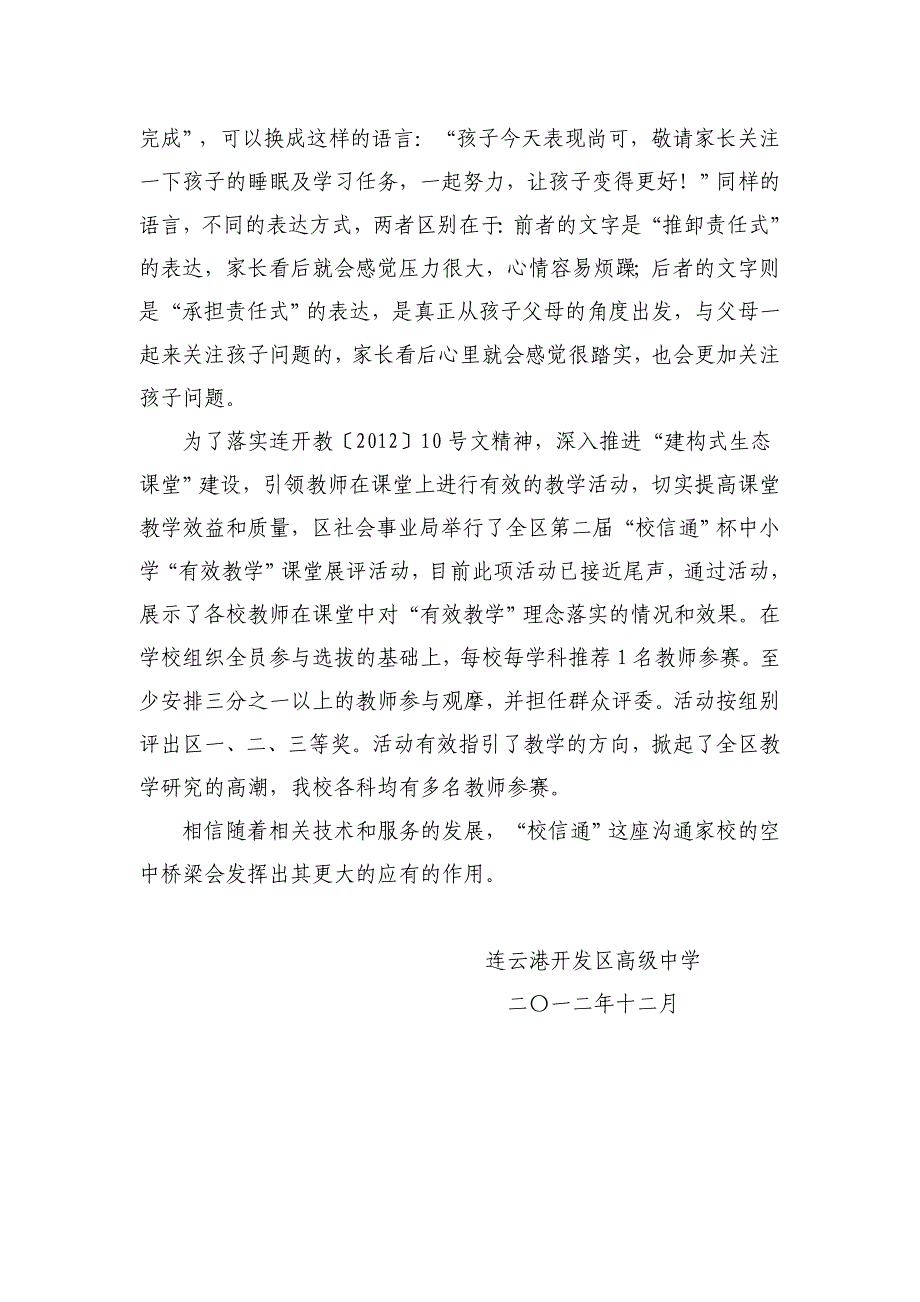 完成”，可以换成这样的语言：“孩子今天表现尚可，敬请家长关注
一下孩子的睡眠及学习任务，一起努力，让孩子变得更好！”同样的
语言，不同的表达方式，两者区别在于：前者的文字是“推卸责任式”
的表达，家长看后就会感觉压力很大，心情容易烦躁；后者的文字则
是“承担责任式”的表达，是真正从孩子父母的角度出发，与父母一
起来关注孩子问题的，家长看后心里就会感觉很踏实，也会更加关注
孩子问题。
为了落实连开教〔2012〕10 号文精神，深入推进“建构式生态
课堂”建设，引领教师在课堂上进行有效的教学活动，切实提高课堂
教学效益和质量，区社会事业局举行了全区第二届“校信通”杯中小
学“有效教学”课堂展评活动，目前此项活动已接近尾声，通过活动，
展示了各校教师在课堂中对“有效教学”理念落实的情况和效果。在
学校组织全员参与选拔的基础上，每校每学科推荐 1 名教师参赛。至
少安排三分之一以上的教师参与观摩，并担任群众评委。活动按组别
评出区一、二、三等奖。活动有效指引了教学的方向，掀起了全区教
学研究的高潮，我校各科均有多名教师参赛。
相信随着相关技术和服务的发展，“校信通”这座沟通家校的空
中桥梁会发挥出其更大的应有的作用。
连云港开发区高级中学
二〇一二年十二月